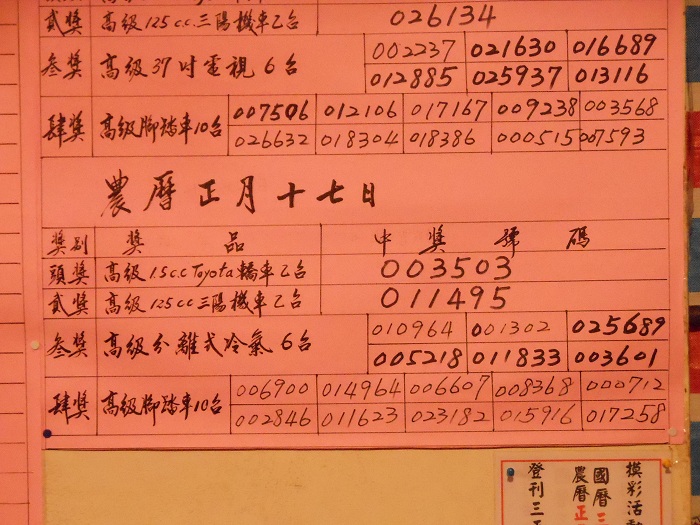 貳獎 高級125c.c.三陽機車乙台 026134
參獎 高級37吋電視6台 002237 021630 016689
012885 025937 013116
肆獎 高級腳踏車10台 007506 012106 017167 009238 003568
026632 018304 018386 000515 007593
農曆正月十七日
獎別 獎品 中獎號碼
頭獎 高級1.5c.c Toyota轎車乙台 003503
貳獎 高級125cc三陽機車乙台 011495
參獎 高級分離式冷氣6台 010964 001302 025689
005218 011833 003601
肆獎 高級腳踏車10台 006900 014964 006607 008368 000712
002846 011623 023182 015916 017258
摸彩活動
國曆三
農曆正
登刊三